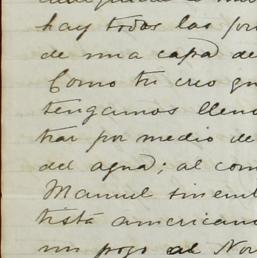 hay todas las
de una capa de
Como tu creo qu
tengamos llen
trar por medio de
del agua; al com
Manuel sin em
tista american
un pozo al Nor